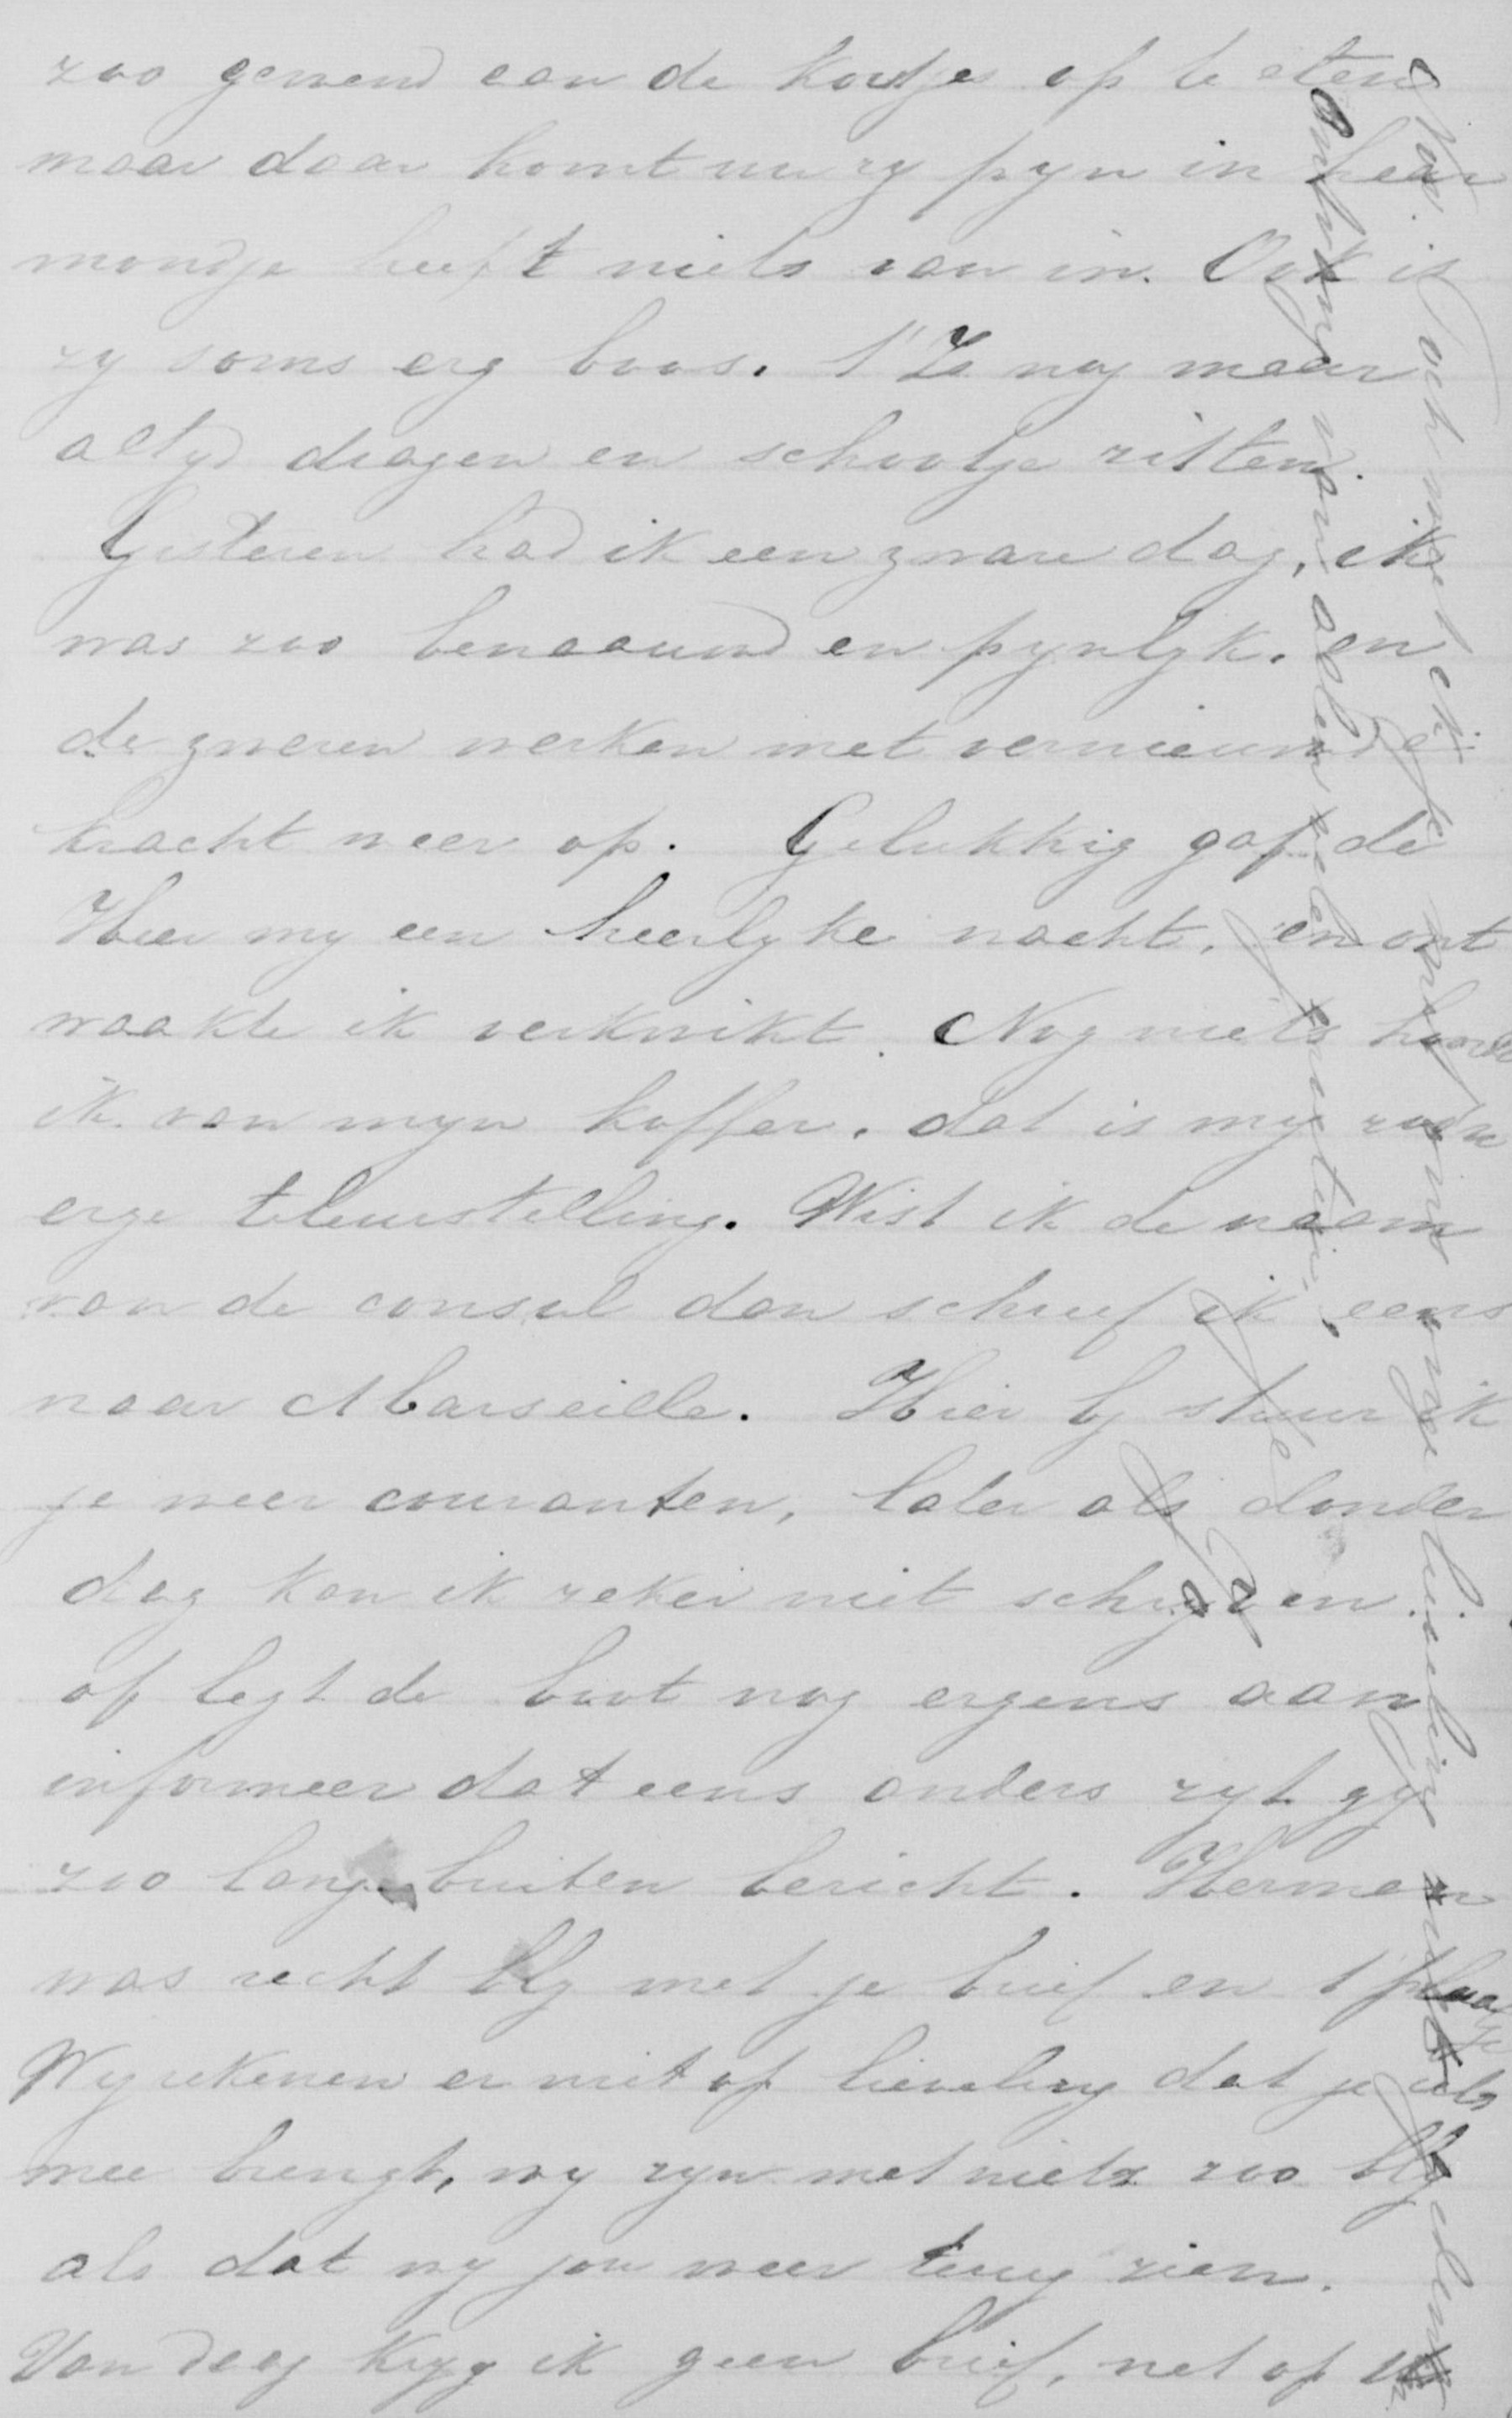 zoo gewend aan de korstjes op te eten
maar daar komt nu zy pyn in haar
mondje heeft niets van in. Ook is
zy soms erg boos. t'Is nog maar
altyd dragen en schootje zitten.
Gisteren had ik een zware dag, ik
was zoo benaauwd en pynlyk. en
de zweren werken met vernieuwde
kracht weer op. Gelukkig gaf de
Heer my een heerlyke nacht, en ont
waakte ik verkwikt. Nog niets hoorde
ik van myn koffer. dat is my zoo'n
erge teleurstelling. Wist ik de naam
van de consul dan schreef ik eens
naar Marseille. Hier by stuur ik
je weer couranten, later als donder
dag kan ik zeker niet schryven.
of legt de boot nog ergens aan
informeer dat eens anders zyt gy
zoo lang buiten bericht. Herman
was recht bly met je brief en t'plaatje
Wy rekenen er niet op lieveling dat je iets
mee brengt, wy zyn met niets zoo bly
als dat wy jou weer terug zien.
Van daag kryg ik geen brief, net op
Nu. Toch moet ik je
omhelzing van allen